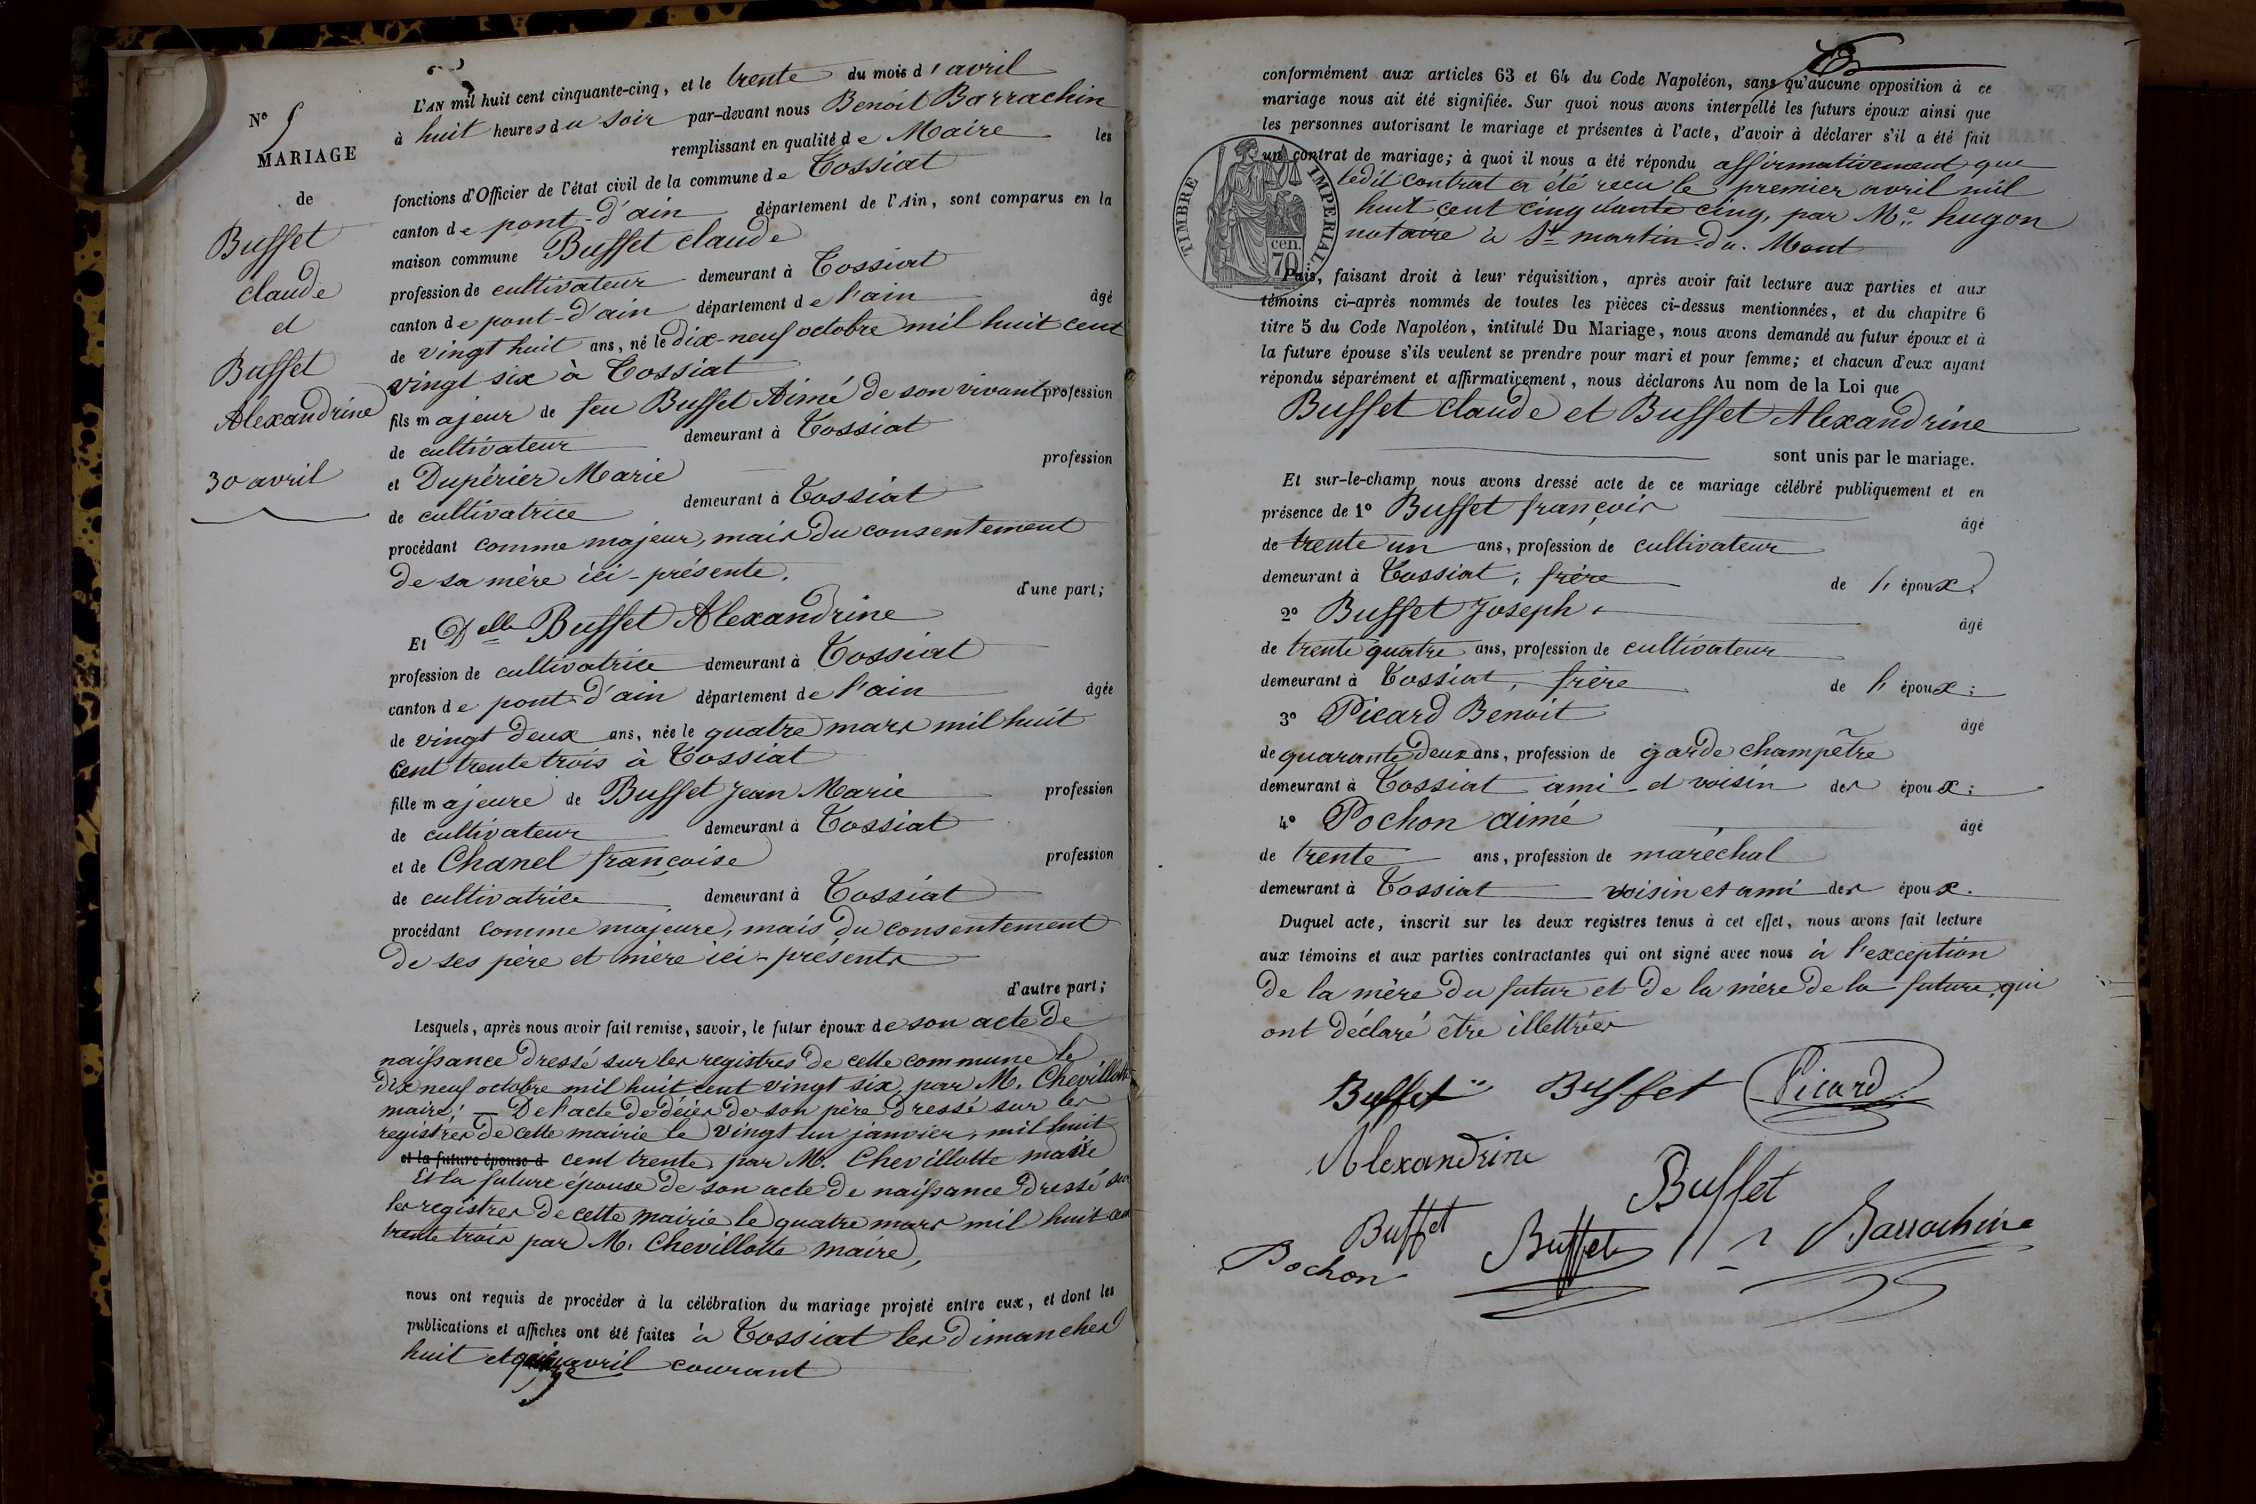 N° 5
MARIAGE
de
Buffet
claude
et
Buffet
Alexandrine
30 avril
L'AN mil huit cent cinquante-cinq, et le trente du mois d'avril
à huit heures du soir par-devant nous Benoit Barrachin
remplissant en qualité de Maire les
fonctions d'Officier de l'état civil de la commune de Tossiat
canton de pont-d'ain département de l'Ain, sont comparus en la
maison commune Buffet claude
profession de cultivateur demeurant à Tossiat
canton de pont-d'ain département de l'ain âgé
de vingt huit ans, né le dix-neuf octobre mil huit cent
vingt six à Tossiat
fils majeur de feu Buffet Aimé de son vivant profession
de cultivateur demeurant à Tossiat
et Dupérier Marie profession
de cultivatrice demeurant à Tossiat
procédant comme majeur, mais du consentement
de sa mère ici-présente.
d'une part;
Et Delle Buffet Alexandrine
profession de cultivatrice demeurant à Tossiat
canton de pont-d'ain département de l'ain âgée
de vingt deux ans, née le quatre mars mil huit
cent trente trois à Tossiat
fille majeure de Buffet Jean Marie profession
de cultivateur demeurant à Tossiat
et de Chanel françoise profession
de cultivatrice demeurant à Tossiat
procédant comme majeure, mais du consentement
de ses père et mère ici-présents
d'autre part;
Lesquels, après nous avoir fait remise, savoir, le futur époux de son acte de
naissance dressé sur les registres de cette commune le
dix neuf octobre mil huit cent vingt six par M. Chevillotte
maire; — De l'acte de décès de son père dressé sur les
registres de cette mairie le vingt un janvier, mil huit
et la future épouse d cent trente par M. Chevillotte maire
Et la future épouse de son acte de naissance dressé sur
les registres de cette mairie le quatre mars mil huit cent
trente trois par M. Chevillotte maire,
nous ont requis de procéder à la célébration du mariage projeté entre eux, et dont les
publications et affiches ont été faites à Tossiat les dimanches
huit et quinze avril courant
conformément aux articles 63 et 64 du Code Napoléon, sans qu'aucune opposition à ce
mariage nous ait été signifiée. Sur quoi nous avons interpellé les futurs époux ainsi que
les personnes autorisant le mariage et présentes à l'acte, d'avoir à déclarer s'il a été fait
un contrat de mariage; à quoi il nous a été répondu affirmativement que
ledit contrat a été reçu le premier avril mil
huit cent cinquante cinq, par Me. hugon
notaire à St martin-du-Mont
TIMBRE IMPERIAL
70 cen.
Puis, faisant droit à leur réquisition, après avoir fait lecture aux parties et aux
témoins ci-après nommés de toutes les pièces ci-dessus mentionnées, et du chapitre 6
titre 5 du Code Napoléon, intitulé Du Mariage, nous avons demandé au futur époux et à
la future épouse s'ils veulent se prendre pour mari et pour femme; et chacun d'eux ayant
répondu séparément et affirmativement, nous déclarons Au nom de la Loi que
Buffet claude et Buffet Alexandrine
sont unis par le mariage.
Et sur-le-champ nous avons dressé acte de ce mariage célébré publiquement et en
présence de 1° Buffet françois âgé
de trente un ans, profession de cultivateur
demeurant à Tossiat, frère de l'époux.
2° Buffet Joseph âgé
de trente quatre ans, profession de cultivateur
demeurant à Tossiat, frère de l'époux;
3° Picard Benoit âgé
de quarante deux ans, profession de garde champêtre
demeurant à Tossiat ami et voisin des époux;
4° Pochon aimé âgé
de trente ans, profession de maréchal
demeurant à Tossiat voisin et ami des époux.
Duquel acte, inscrit sur les deux registres tenus à cet effet, nous avons fait lecture
aux témoins et aux parties contractantes qui ont signé avec nous à l'exception
de la mère du futur et de la mère de la future, qui
ont déclaré être illettrées
Buffet Buffet Picard
Alexandrine
Buffet
Buffet
Pochon Buffet Barrachin